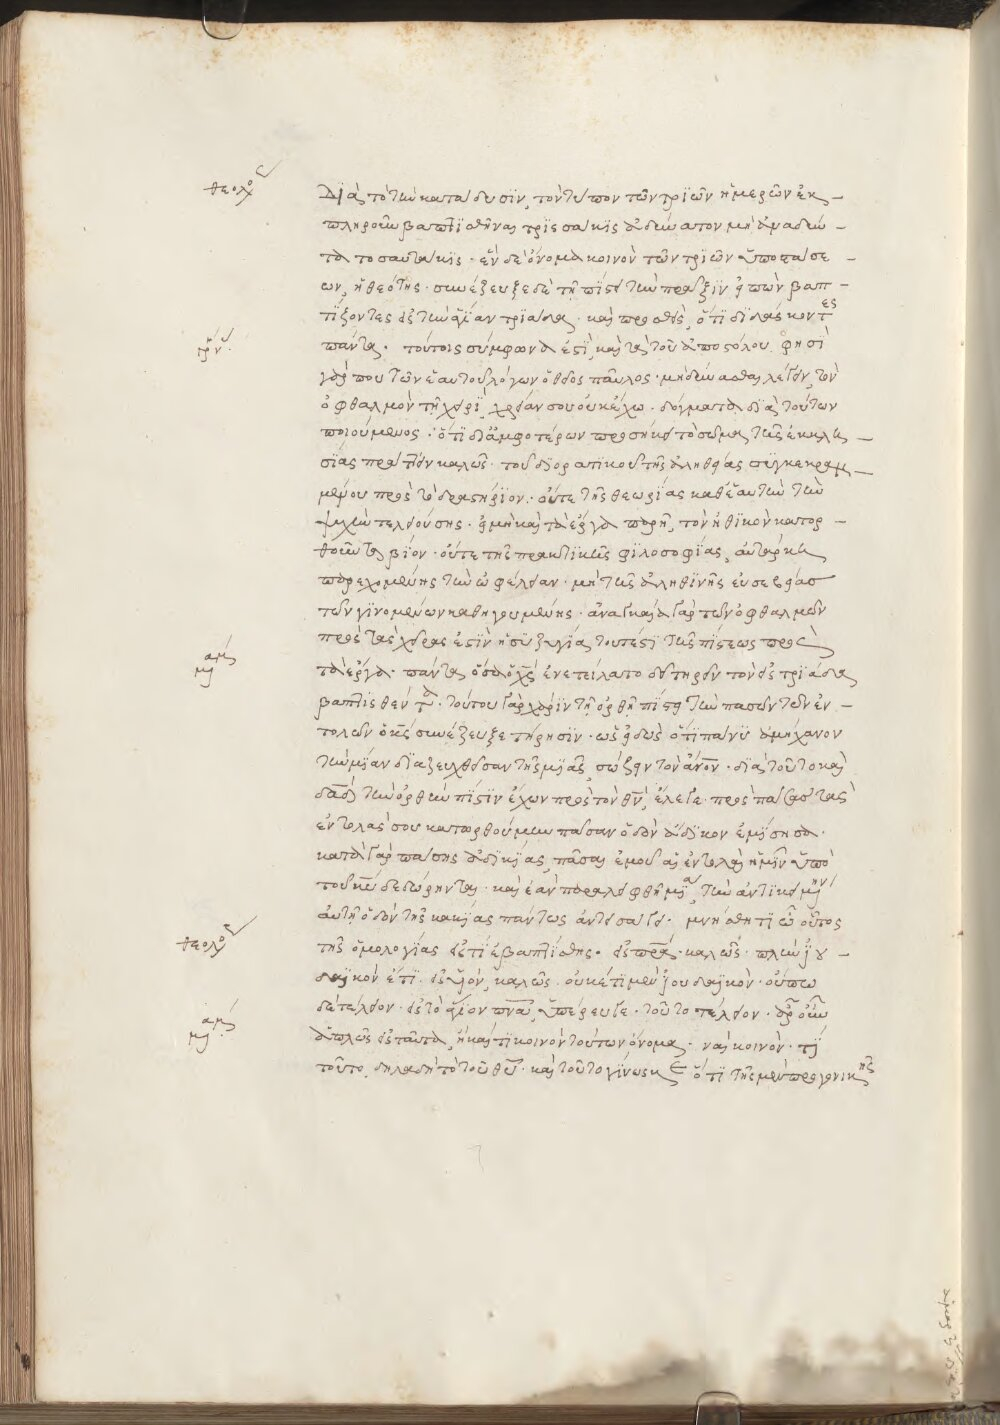 θεολό
Διὰ τὸ τὴν κατάδυσιν, τὸν τύπον τῶν τριῶν ἡμερῶν ἐκ-
πληροῦν βαπτισθῆναι τρισσάκις ἀδύνατον μὴ ἀναδύν-
τα τοσαυτάκις· ἓν δὲ ὄνομα κοινὸν τῶν τριῶν ὑποστάσε-
ων, ἡ θεότης· συνέζευξε δὲ τῇ πίστει τὴν πρᾶξιν ὁ βαπ-
τίζοντες εἰς τὴν ἁγίαν τριάδα· καὶ προσθεὶς, ὅτι διδάσκοντες
πάντα· τούτοις σύμφωνά ἐστι, καὶ τὰ τοῦ ἀποστόλου· φησὶ
γάρ που τῶν ἑαυτοῦ λόγων ὁ θεῖος παῦλος· μὴ δύνασθαι λέγειν, τὸν
ὀφθαλμὸν τῇ χειρὶ, χρείαν σου οὐκ ἔχω· δόγματα διὰ τούτων
ποιούμενος· ὅτι δι' ἀμφοτέρων προσήκει τὸ σῶμα τῆς ἐκκλη-
σίας πράττειν καλῶς· τοῦ διορατικοῦ τῆς ἀληθείας συγκεκραμ-
μένου πρὸς τὸ δραστήριον· οὔτε τῆς θεωρίας καθ' ἑαυτὴν τὴν
ψυχὴν τελειούσης· εἰ μὴ καὶ τὰ ἔργα παρῇ, τὸν ἠθικὸν κατορ-
θοῦντα βίον· οὔτε τῆς πρακτικῆς φιλοσοφίας, αὐτάρκη
παρεχομένης τὴν ὠφέλειαν· μὴ τῆς ἀληθινῆς εὐσεβείας
τῶν γινομένων καθηγουμένης· ἀναγκαία γὰρ τῶν ὀφθαλμῶν
πρὸς τὰς χεῖρας ἐστὶν ἡ συζυγία τουτέστι τῆς πίστεως πρὸς
τὰ ἔργα· πάντα ὅσα ὁ χς ἐνετείλατο δεῖ τηρεῖν τὸν εἰς τριάδα
βαπτισθέντα· τούτου γὰρ χάριν τῇ ὀρθῇ πίστει τὴν πασῶν τῶν ἐν-
τολῶν ὁ κς συνέζευξε τήρησιν· ὡς εἰδὼς ὅτι πάνυ ἀμήχανον
τὴν μίαν διαζευχθεῖσαν τῆς μιᾶς, σώζειν τὸν ἄνον· διὰ τοῦτο καὶ
δαδ τὴν ὀρθὴν πίστιν ἔχων πρὸς τὸν θν, ἔλεγε· πρὸς πάσας τὰς
ἐντολάς σου κατωρθούμην πᾶσαν ὁδὸν ἄδικον ἐμίσησα·
κατὰ γὰρ πάσης ἀδικίας, πᾶσαι ἐμοῦ αἱ ἐντολαὶ ἡμῖν ὑπὸ
τοῦ κυ δεδώρηνται· καὶ ἐὰν παραλειφθῇ μία, τὴν ἀντικειμένην
αὐτῇ ὁδὸν τῆς κακίας πάντως ἀντεισάγει· μνήσθητι ὦ οὗτος
θεολό
τῆς ὁμολογίας εἰς τί ἐβαπτίσθης· εἰς πρα· καλῶς· πλὴν ἰου-
δαϊκὸν ἔτι· εἰς υἱόν, καλῶς· οὐκέτι μὲν ἰουδαϊκὸν· οὔπω
δὲ τέλειον· εἰς τὸ ἅγιον πνα, ὑπέρευγε· τοῦτο τέλειον· ἆρ' οὖν
ἁπλῶς εἰς ταῦτα, ἢ καί τι κοινὸν τούτων ὄνομα· ναὶ κοινὸν· τί
τοῦτο, δηλαδὴ τὸ τοῦ θυ· καὶ τοῦτο γίνωσκε ὅτι τῆς μὲν προγονικῆς